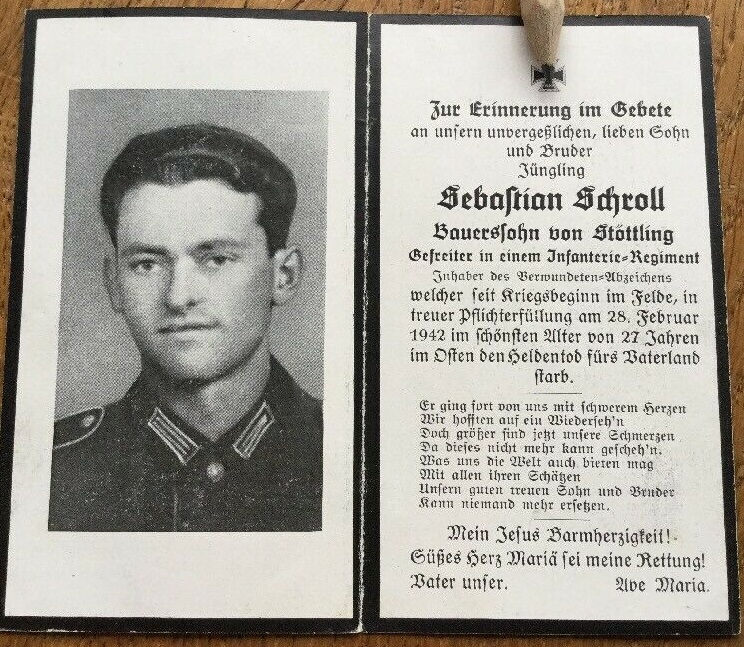 Zur Erinnerung im Gebete
an unsern unvergeßlichen, lieben Sohn
und Bruder
Jüngling
Sebastian Schroll
Bauerssohn von Stöttling
Gefreiter in einem Infanterie-Regiment
Inhaber des Verwundeten-Abzeichens
welcher seit Kriegsbeginn im Felde, in
treuer Pflichterfüllung am 28. Februar
1942 im schönsten Alter von 27 Jahren
im Osten den Heldentod fürs Vaterland
starb.
Er ging fort von uns mit schwerem Herzen
Wir hofften auf ein Wiederseh'n
Doch größer sind jetzt unsere Schmerzen
Da dieses nicht mehr kann gescheh'n.
Was uns die Welt auch bieten mag
Mit allen ihren Schätzen
Unsern guten treuen Sohn und Bruder
Kann niemand mehr ersetzen.
Mein Jesus Barmherzigkeit!
Süßes Herz Mariä sei meine Rettung!
Vater unser. Ave Maria.